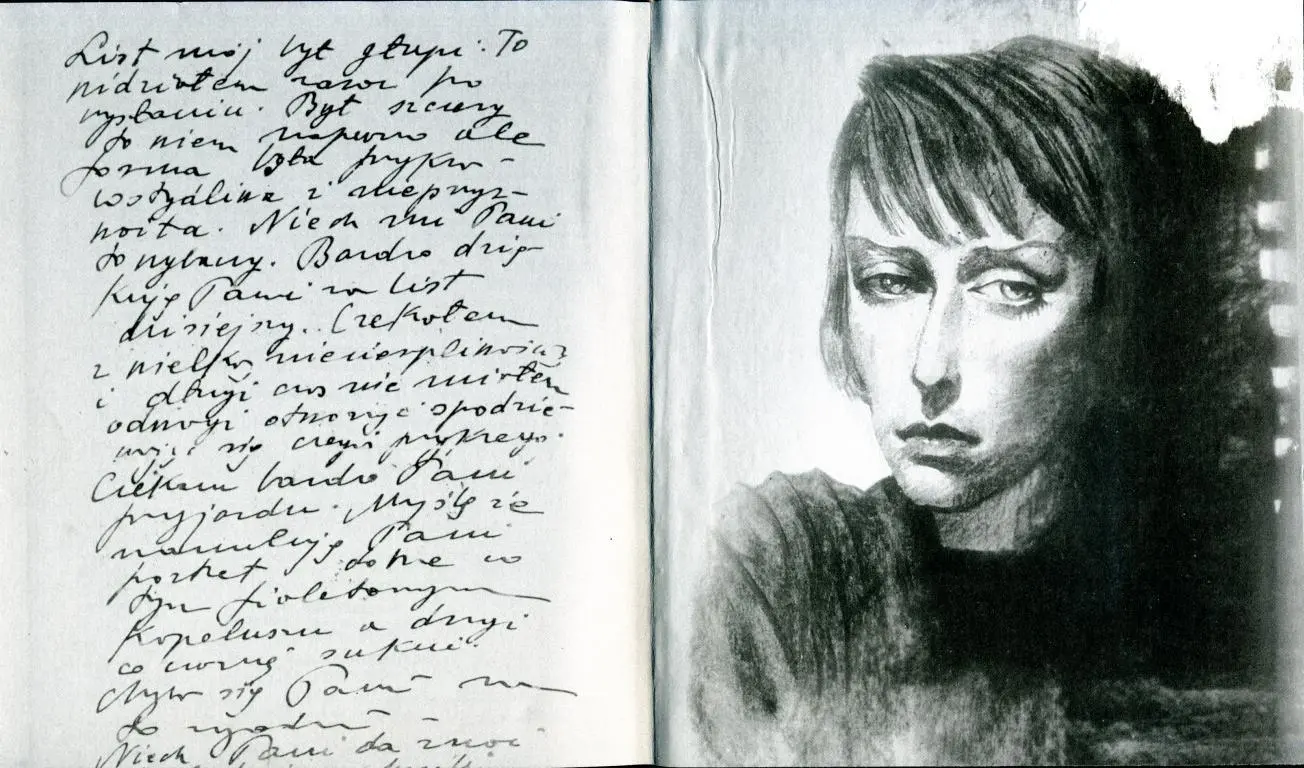 List mój był głupi. To
widziałem zaraz po
wysłaniu. Był szczery
to wiem napewno ale
forma była przykra
wstydliwa i nieprzy-
zoita. Niech mi Pani
to wybaczy. Bardzo dzię-
kuję Pani za list
dzisiejszy. Czekałem
z wielką niecierpliwością
i długi czas nie miałem
odwagi otworzyć spodzie-
wając się czegoś przykrego.
Czekam bardzo Pani
przyjazdu. Myślę że
namaluję Pani
portret dobre w
tym fioletowym
kapeluszu a drugi
w czarnej sukni.
Pani na
to zgodzi
Niech Pani da znać